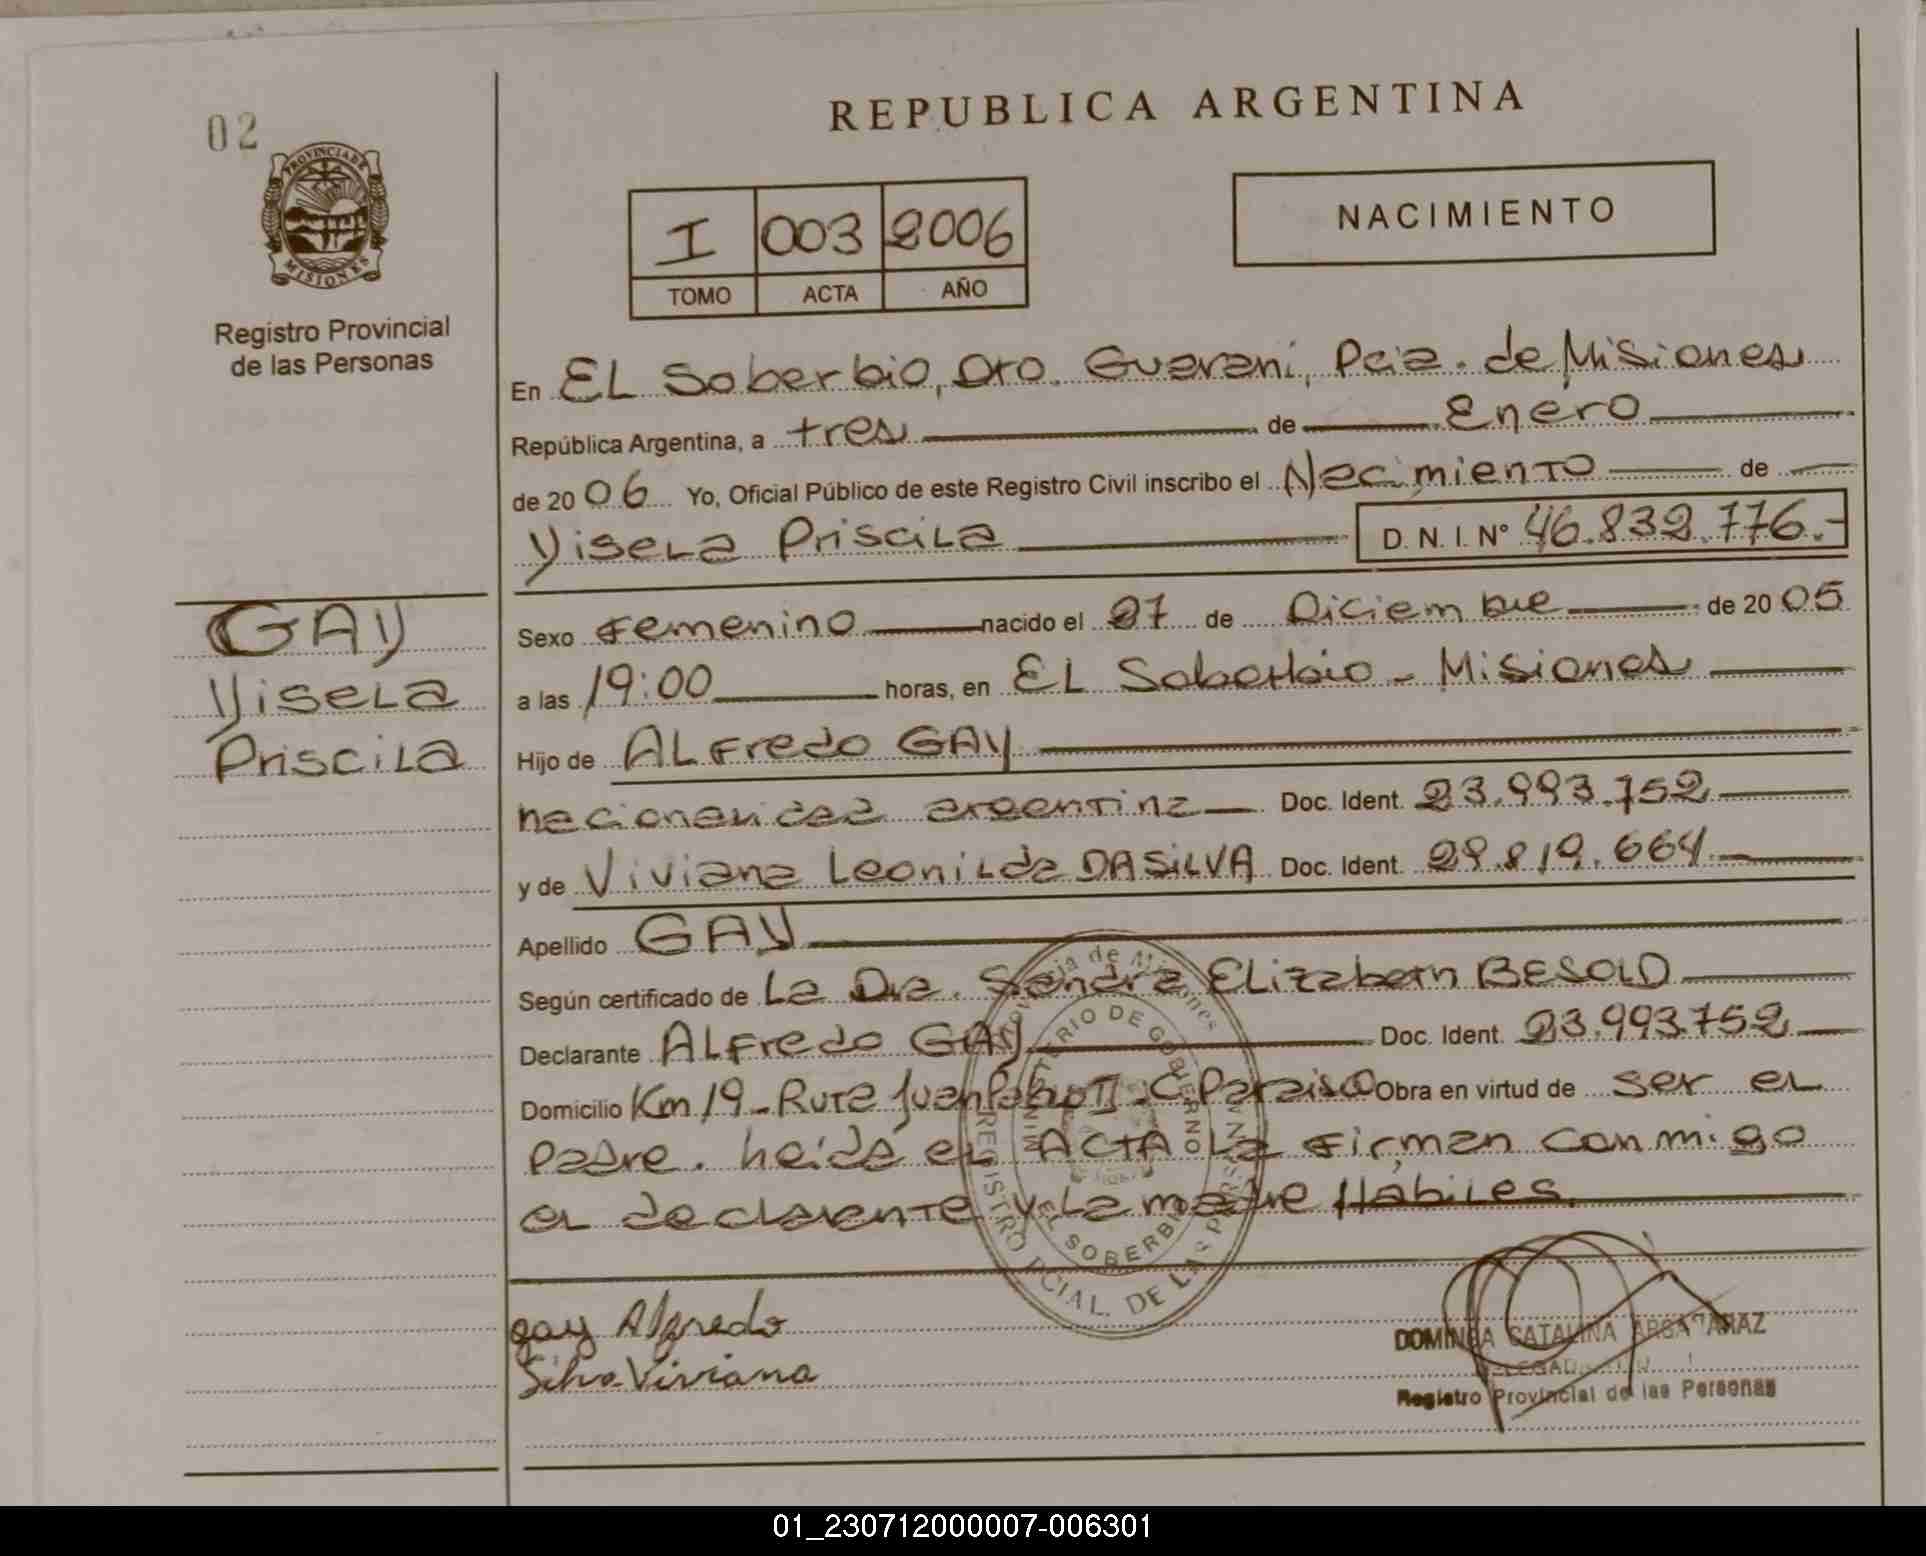 02
PROVINCIA DE
MISIONES
Registro Provincial
de las Personas
REPUBLICA ARGENTINA
I 003 2006
TOMO ACTA AÑO
NACIMIENTO
En EL Soberbio, Dto. Guarani, Pcia. de Misiones
República Argentina, a tres de Enero
de 2006 Yo, Oficial Público de este Registro Civil inscribo el Nacimiento de
Yisela Priscila D.N.I. Nº 46.832.776.-
GAY
Yisela
Priscila
Sexo Femenino nacido el 27 de Diciembre de 2005
a las 19:00 horas, en EL Soberbio - Misiones
Hijo de ALFredo GAY
nacionalidad argentina Doc. Ident. 23.993.752
y de Viviana Leonilda DASILVA Doc. Ident. 29.819.664
Apellido GAY
Según certificado de La Dra. Sandra Elizabeth BESOLD
Declarante ALFredo GAY Doc. Ident. 23.993.752
Domicilio Km 19 - Ruta Juan Pablo II - C. Paraiso Obra en virtud de ser el
Padre. Leída el ACTA La Firman conmigo
el declarante y La madre Hábiles.
Provincia de Misiones
MINISTERIO DE GOBIERNO
EL SOBERBIO
REGISTRO PCIAL. DE LAS PERSONAS
gay Alfredo
Silva Viviana
DOMINGA CATALINA ARGAÑARAZ
Registro Provincial de las Personas
01_230712000007-006301